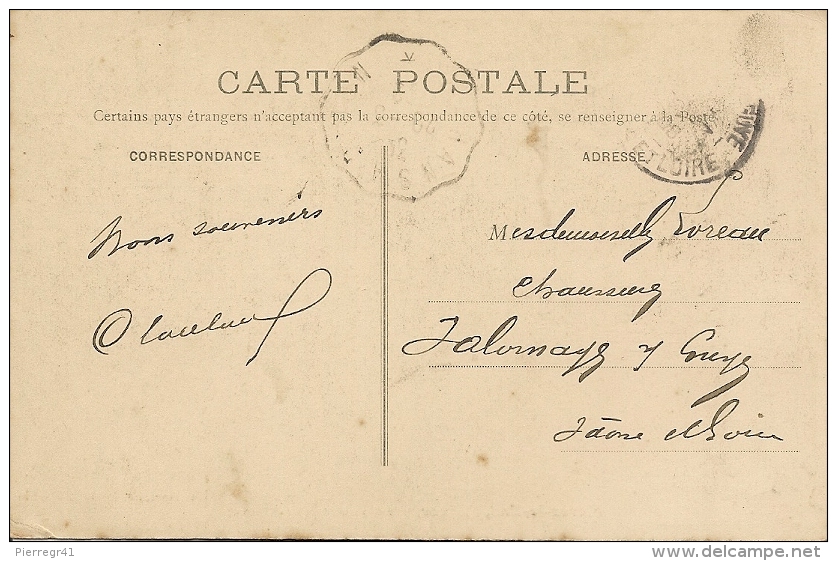 CARTE POSTALE
Certains pays étrangers n'acceptant pas la correspondance de ce côté, se renseigner à la Poste
CORRESPONDANCE
ADRESSE
Bons souvenirs
Mesdemoiselles Loreau
Chaussures
Salornay s/ Guye
Saône et Loire
ET LOIRE
Pierregr41
www.delcampe.net